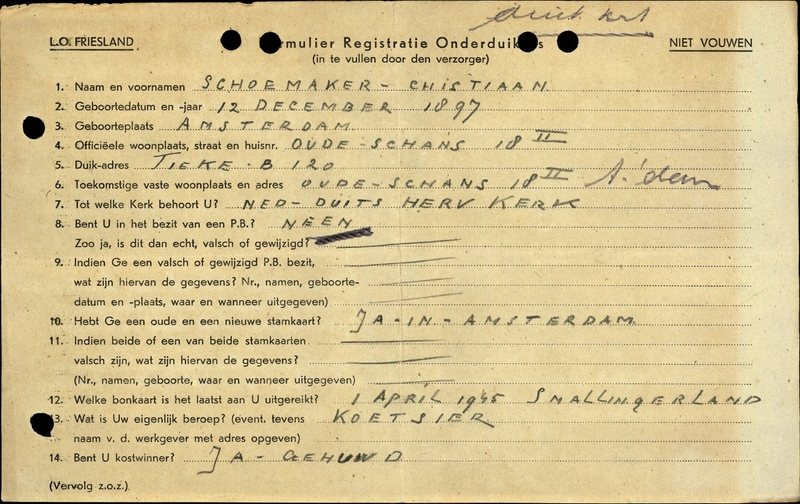 L.O. FRIESLAND
Formulier Registratie Onderduikers
NIET VOUWEN
(in te vullen door den verzorger)
1. Naam en voornamen SCHOEMAKER - CHISTIAAN
2. Geboortedatum en -jaar 12 DECEMBER 1897
3. Geboorteplaats AMSTERDAM
4. Officiëele woonplaats, straat en huisnr. OUDE-SCHANS 18 II
5. Duik-adres TIEKE - B 120
6. Toekomstige vaste woonplaats en adres OUDE-SCHANS 18 II A'dam
7. Tot welke Kerk behoort U? NED-DUITS HERV KERK
8. Bent U in het bezit van een P.B.? NEEN
Zoo ja, is dit dan echt, valsch of gewijzigd?
9. Indien Ge een valsch of gewijzigd P.B. bezit,
wat zijn hiervan de gegevens? Nr., namen, geboorte-
datum en -plaats, waar en wanneer uitgegeven)
10. Hebt Ge een oude en een nieuwe stamkaart? JA-IN-AMSTERDAM
11. Indien beide of een van beide stamkaarten
valsch zijn, wat zijn hiervan de gegevens?
(Nr., namen, geboorte, waar en wanneer uitgegeven)
12. Welke bonkaart is het laatst aan U uitgereikt? 1 APRIL 1945 SMALLINGERLAND
13. Wat is Uw eigenlijk beroep? (event. tevens KOETSIER
naam v. d. werkgever met adres opgeven)
14. Bent U kostwinner? JA - GEHUWD
(Vervolg z.o.z.)